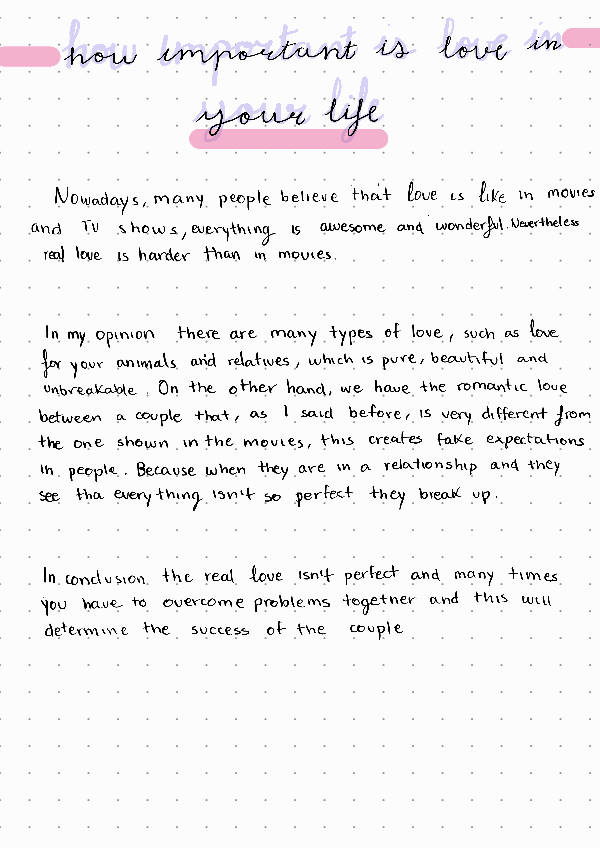 how important is love in
your life
Nowadays, many people believe that love is like in movies
and TV shows, everything is awesome and wonderful. Nevertheless
real love is harder than in movies.
In my opinion there are many types of love, such as love
for your animals and relatives, which is pure, beautiful and
unbreakable. On the other hand, we have the romantic love
between a couple that, as I said before, is very different from
the one shown in the movies, this creates fake expectations
in people. Because when they are in a relationship and they
see tha everything isn't so perfect they break up.
In conclusion the real love isn't perfect and many times
you have to overcome problems together and this will
determine the success of the couple